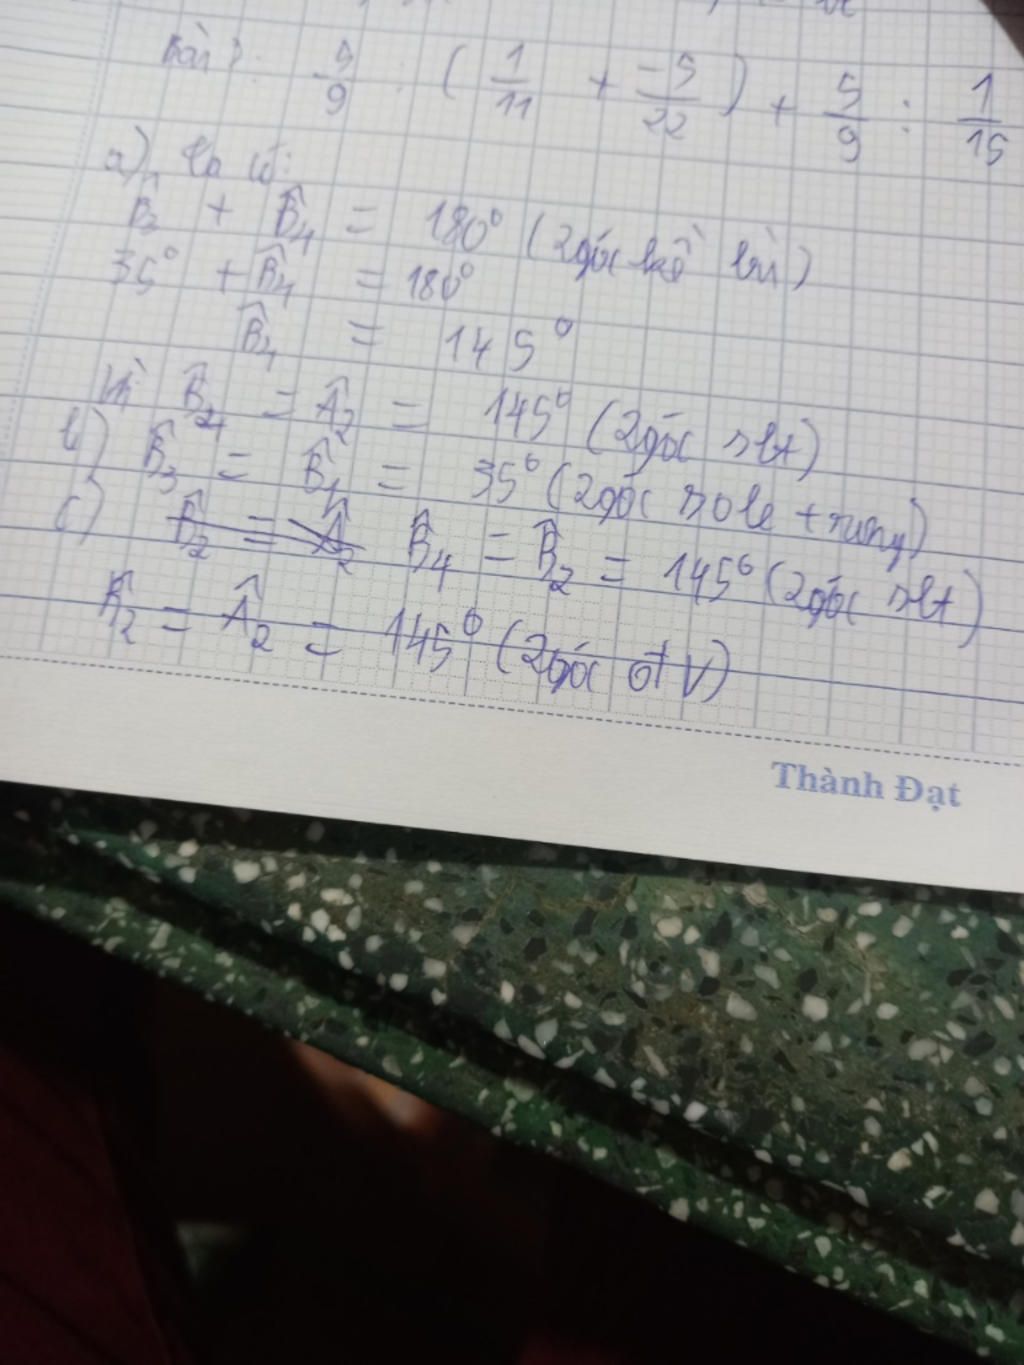 Bài 2: 5/9 : ( 1/11 + -5/22 ) + 5/9 : 1/15
a) Ta có:
B̂₃ + B̂₄ = 180° (2góc kề bù)
35° + B̂₄ = 180°
B̂₄ = 145°
Vì B̂₄ = Â₂ = 145° (2góc slt)
b) B̂₃ = B̂₁ = 35° (2góc sole trung)
c) B̂₂ = Â₂ B̂₄ = B̂₂ = 145° (2góc slt)
B̂₂ = Â₂ = 145° (2góc đ V)
Thành Đạt